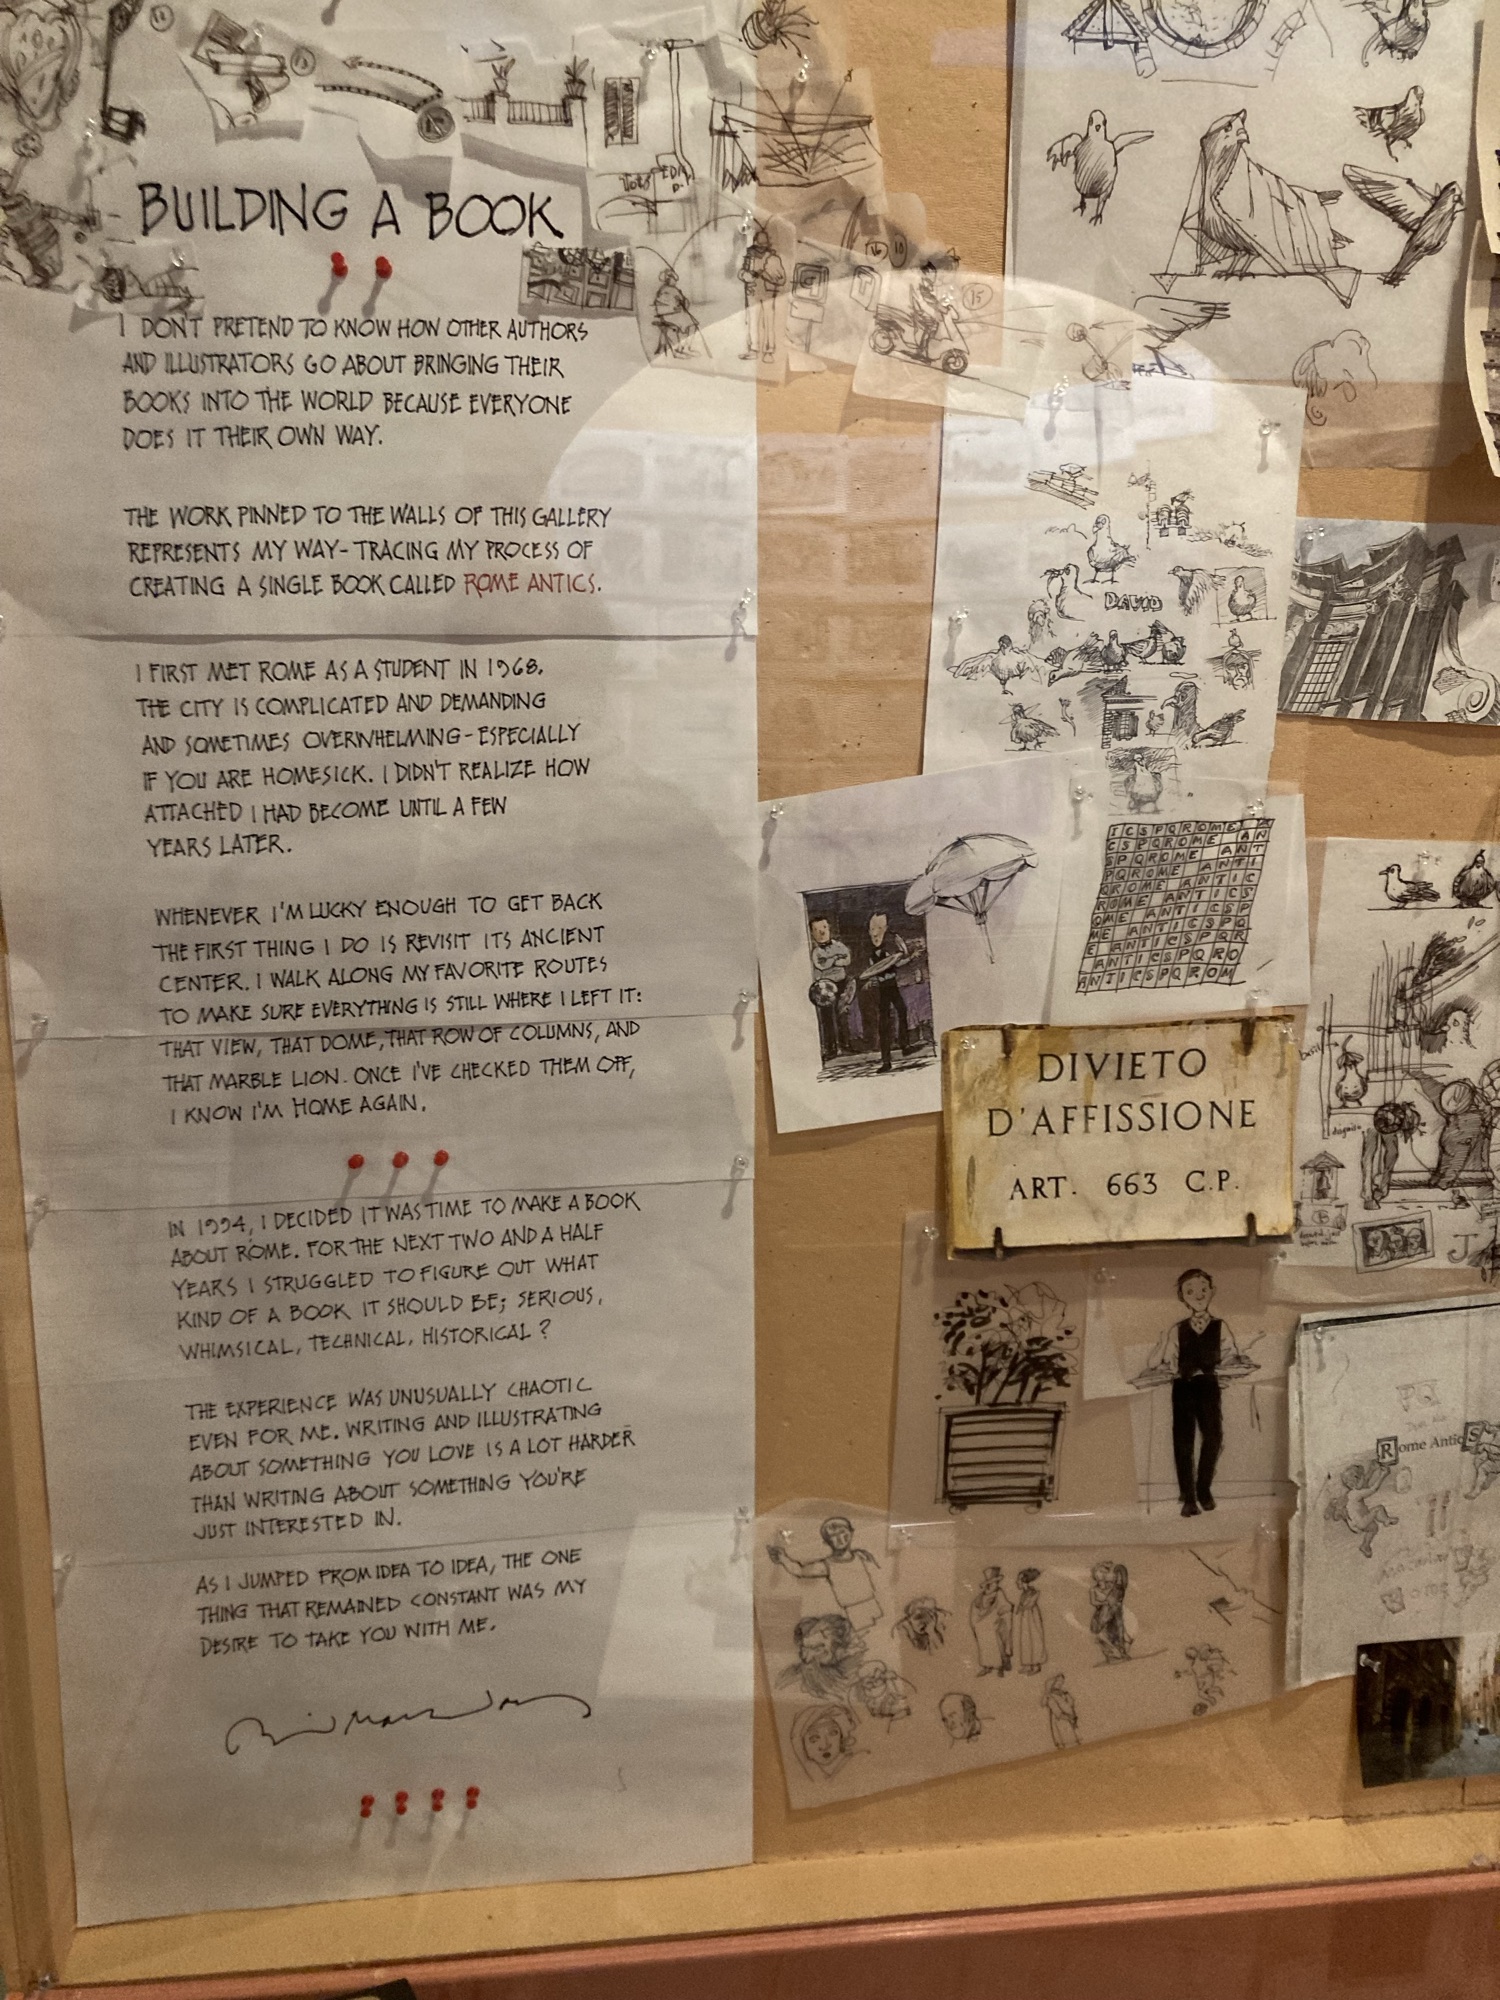 BUILDING A BOOK
I DON'T PRETEND TO KNOW HOW OTHER AUTHORS
AND ILLUSTRATORS GO ABOUT BRINGING THEIR
BOOKS INTO THE WORLD BECAUSE EVERYONE
DOES IT THEIR OWN WAY.
THE WORK PINNED TO THE WALLS OF THIS GALLERY
REPRESENTS MY WAY- TRACING MY PROCESS OF
CREATING A SINGLE BOOK CALLED ROME ANTICS.
I FIRST MET ROME AS A STUDENT IN 1968.
THE CITY IS COMPLICATED AND DEMANDING
AND SOMETIMES OVERWHELMING - ESPECIALLY
IF YOU ARE HOMESICK. I DIDN'T REALIZE HOW
ATTACHED I HAD BECOME UNTIL A FEW
YEARS LATER.
WHENEVER I'M LUCKY ENOUGH TO GET BACK
THE FIRST THING I DO IS REVISIT ITS ANCIENT
CENTER. I WALK ALONG MY FAVORITE ROUTES
TO MAKE SURE EVERYTHING IS STILL WHERE I LEFT IT:
THAT VIEW, THAT DOME, THAT ROW OF COLUMNS, AND
THAT MARBLE LION. ONCE I'VE CHECKED THEM OFF,
I KNOW I'M HOME AGAIN.
IN 1994, I DECIDED IT WAS TIME TO MAKE A BOOK
ABOUT ROME. FOR THE NEXT TWO AND A HALF
YEARS I STRUGGLED TO FIGURE OUT WHAT
KIND OF A BOOK IT SHOULD BE; SERIOUS,
WHIMSICAL, TECHNICAL, HISTORICAL?
THE EXPERIENCE WAS UNUSUALLY CHAOTIC
EVEN FOR ME. WRITING AND ILLUSTRATING
ABOUT SOMETHING YOU LOVE IS A LOT HARDER
THAN WRITING ABOUT SOMETHING YOU'RE
JUST INTERESTED IN.
AS I JUMPED FROM IDEA TO IDEA, THE ONE
THING THAT REMAINED CONSTANT WAS MY
DESIRE TO TAKE YOU WITH ME.
DAVID
ICSPQROME A
CSPQROME AN
SPQROME ANT
PQROME ANTI
QROME ANTIC
ROME ANTICS
OME ANTICSP
ME ANTICSPQ
E ANTICSPQR
ANTICSPQRO
ANTICSPQROM
DIVIETO
D'AFFISSIONE
ART. 663 C.P.
Rome AnticS